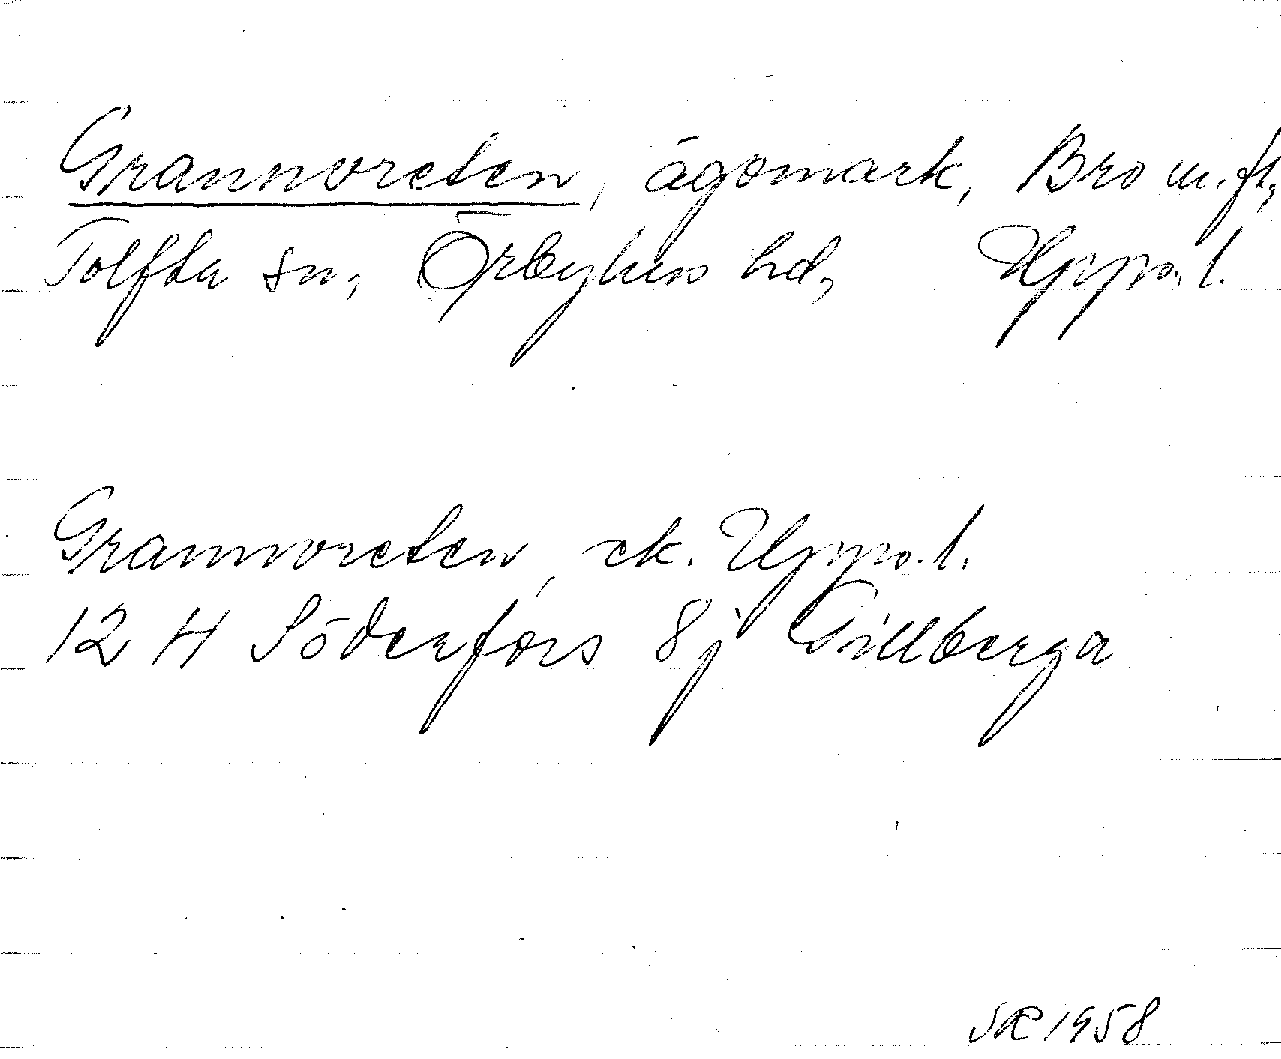 Grannvreten, ägomark, Bro m.fl.,
Tolfta sn, Örbyhus hd, Upps.l.
Grannvreten, ek. Upps.l.
12 H Söderfors 8j Gillberga
1958